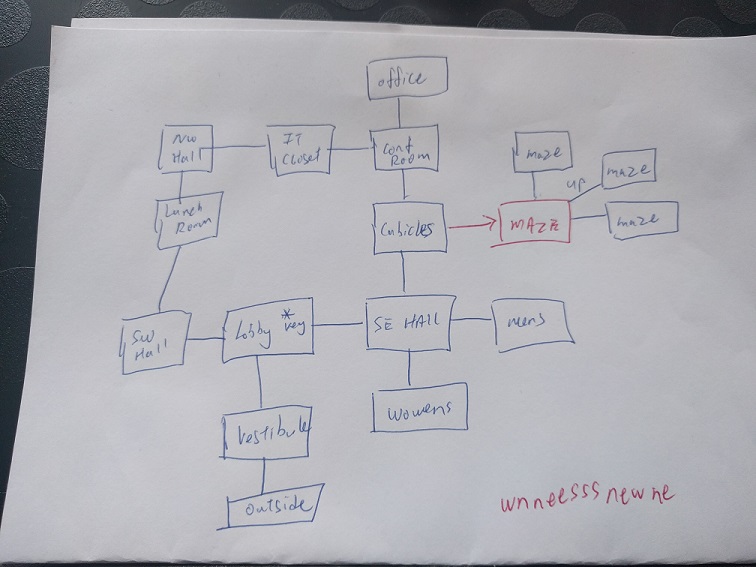 office
NW
Hall
IT
Closet
Conf
Room
maze
up
maze
Lunch
Room
Cubicles
MAZE
maze
SW
Hall
Lobby *key
SE HALL
mens
Womens
Vestibule
outside
wnneesssnewne